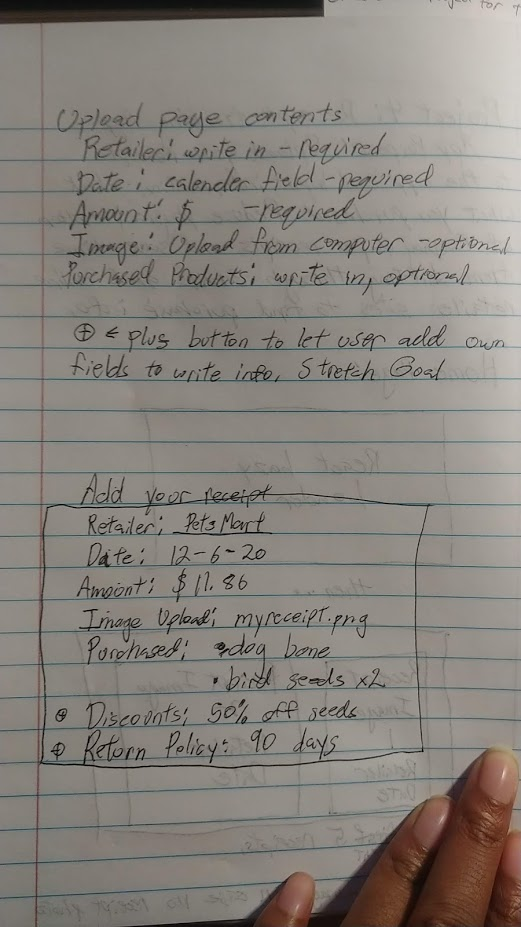 for
Upload page contents
Retailer: write in - required
Date: calender field - required
Amount: $ - required
Image: Upload from computer - optional
Purchased Products: write in, optional
⊕ ← plus button to let user add own
fields to write info, Stretch Goal
Add your receipt
Retailer: PetsMart
Date: 12-6-20
Amount: $11.86
Image Upload: myreceipt.png
Purchased: • dog bone
• bird seeds x2
⊕ Discounts: 50% off seeds
⊕ Return Policy: 90 days